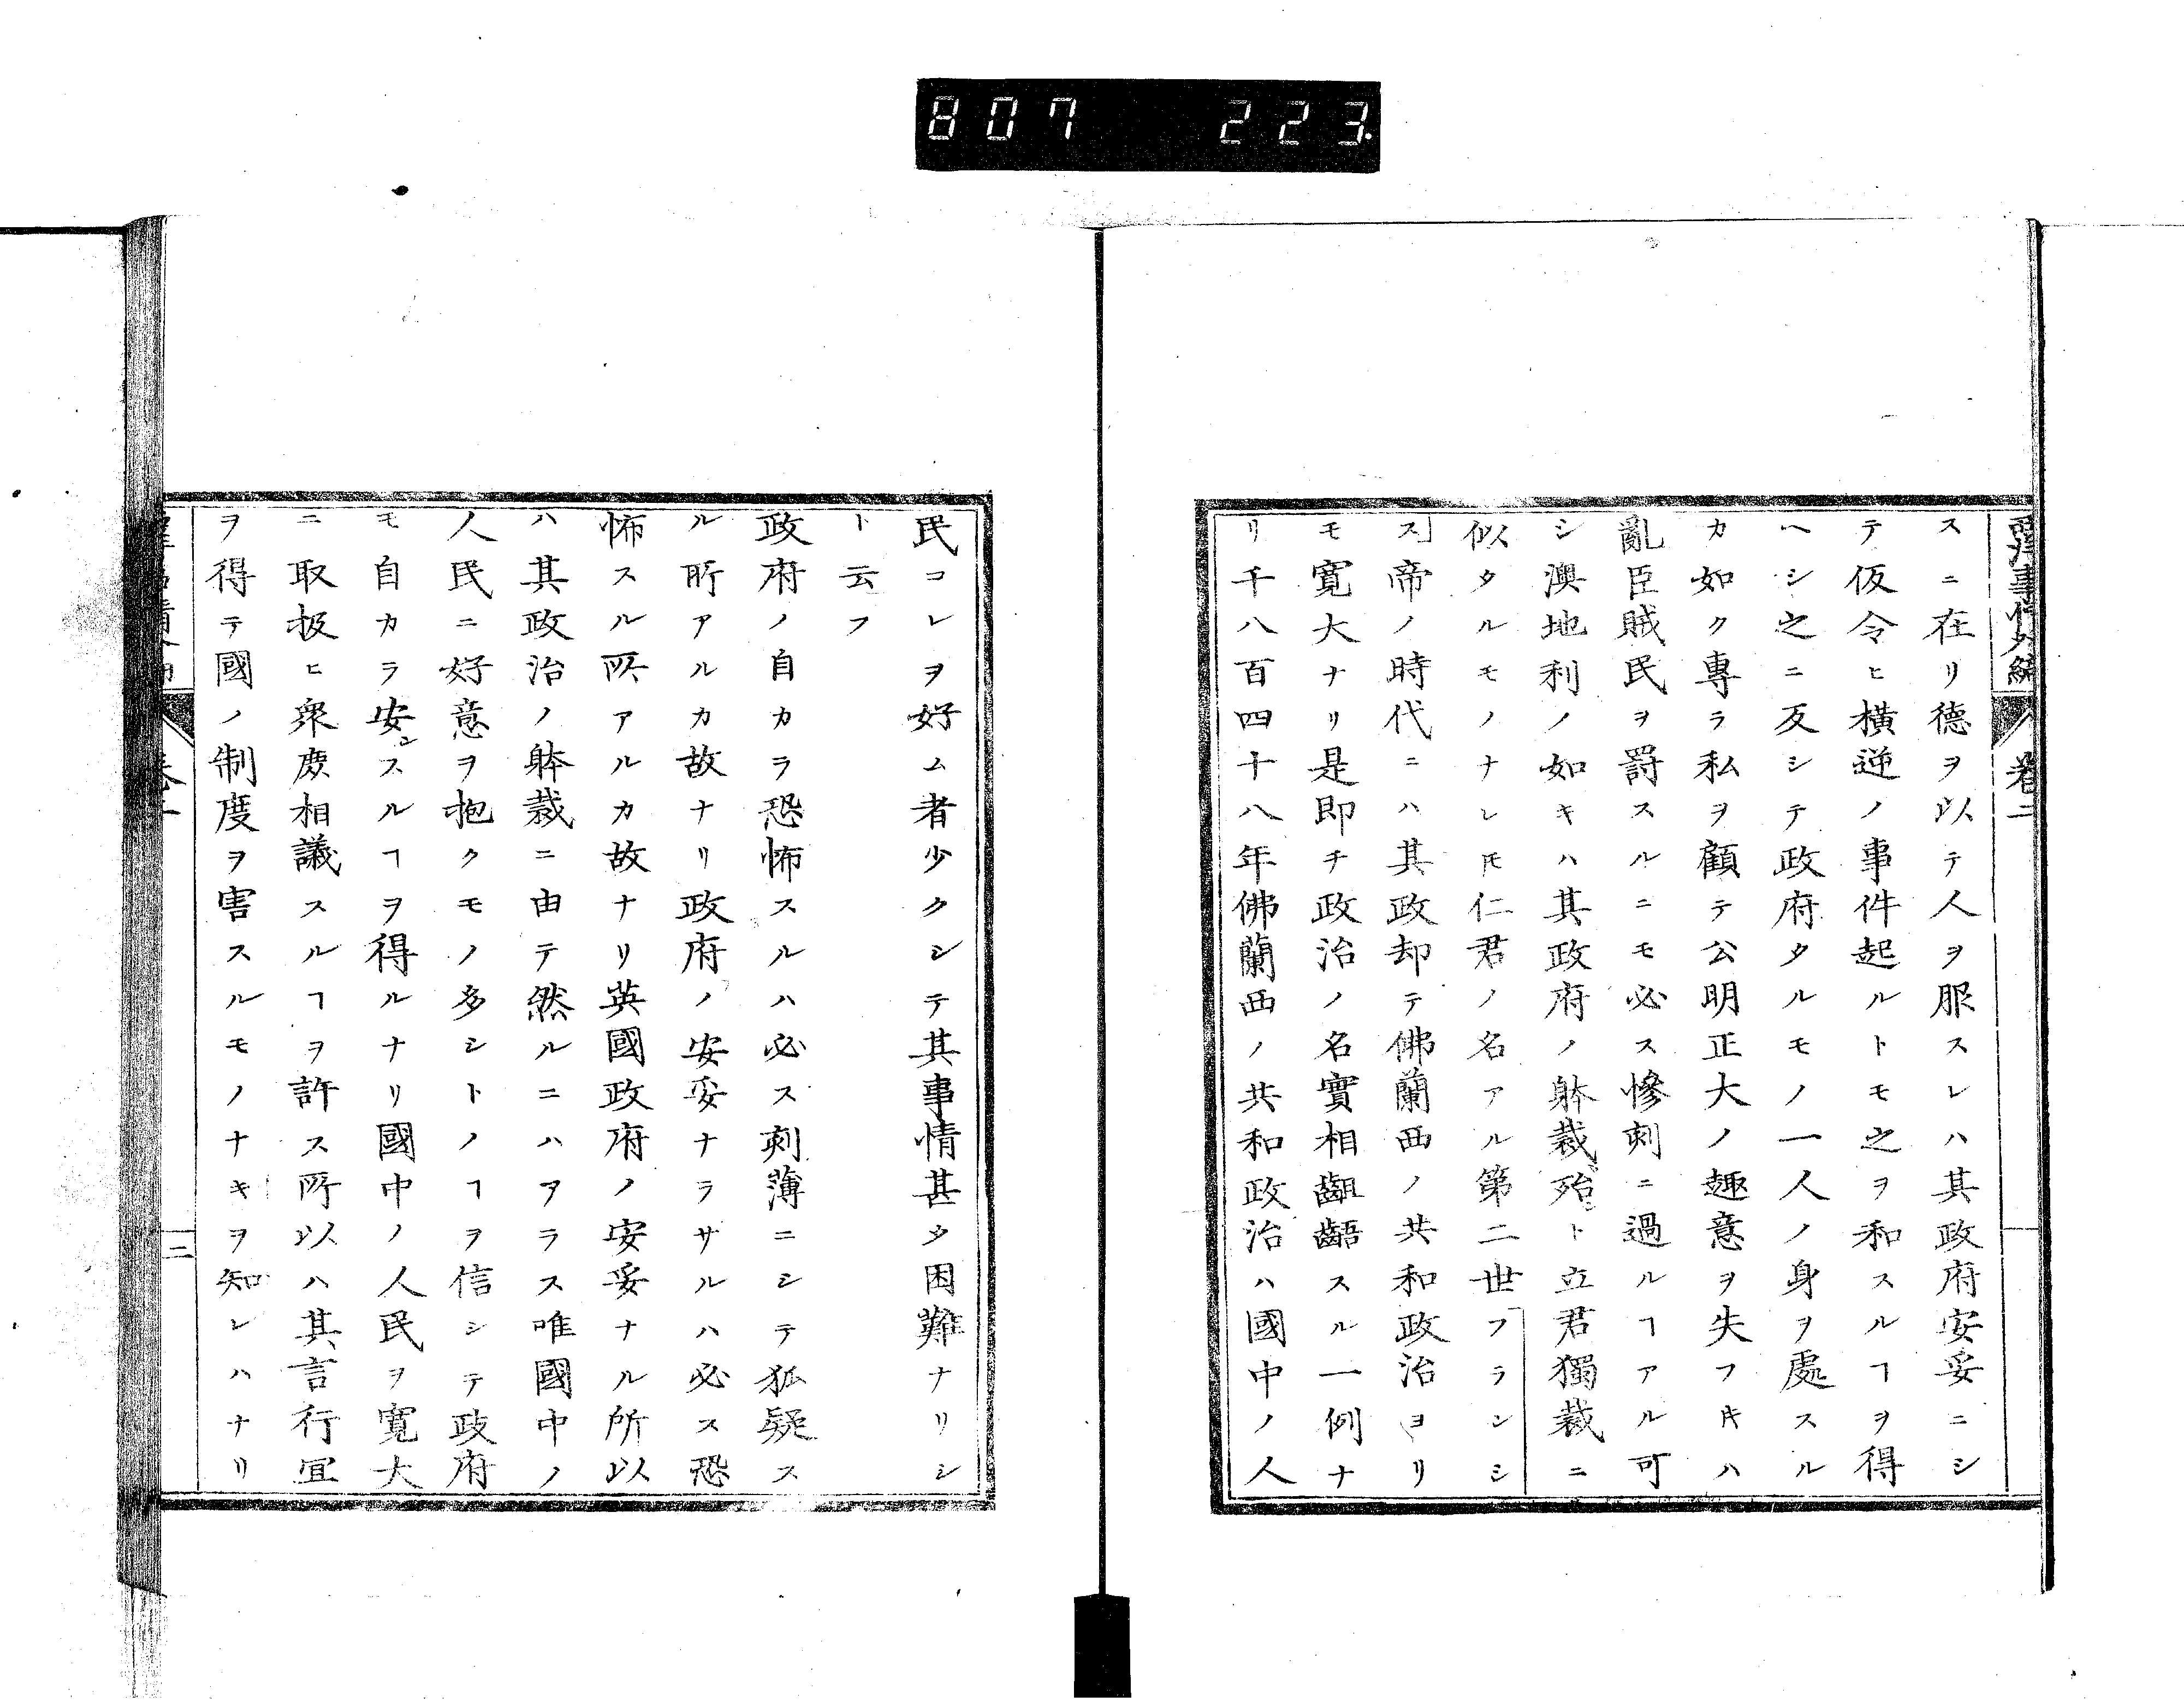 807 223
西洋事情外編 卷二
スニ在リ德ヲ以テ人ヲ服スレハ其政府安妥ニシ
テ仮令ヒ横逆ノ事件起ルトモ之ヲ和スルヿヲ得
ヘシ之ニ反シテ政府タルモノ一人ノ身ヲ處スル
カ如ク專ラ私ヲ顧テ公明正大ノ趣意ヲ失フキハ
亂臣賊民ヲ罰スルニモ必ス慘刺ニ過ルヿアル可
シ澳地利ノ如キハ其政府ノ躰裁殆ト立君獨裁ニ
似タルモノナレ𪜈仁君ノ名アル第二世フランシ
ス帝ノ時代ニハ其政却テ佛蘭西ノ共和政治ヨリ
モ寛大ナリ是即チ政治ノ名實相齟齬スル一例ナ
リ千八百四十八年佛蘭西ノ共和政治ハ國中ノ人
民コレヲ好ム者少クシテ其事情甚タ困難ナリシ
ト云フ
政府ノ自カラ恐怖スルハ必ス刺薄ニシテ狐疑ス
ル所アルカ故ナリ政府ノ安妥ナラサルハ必ス恐
怖スル所アルカ故ナリ英國政府ノ安妥ナル所以
ハ其政治ノ躰裁ニ由テ然ルニハアラス唯國中ノ
人民ニ好意ヲ抱クモノ多シトノヿヲ信シテ政府
モ自カラ安ンスルヿヲ得ルナリ國中ノ人民ヲ寛大
ニ取扱ヒ衆庶相議スルヿヲ許ス所以ハ其言行冝
ヲ得テ國ノ制度ヲ害スルモノナキヲ知レハナリ
二